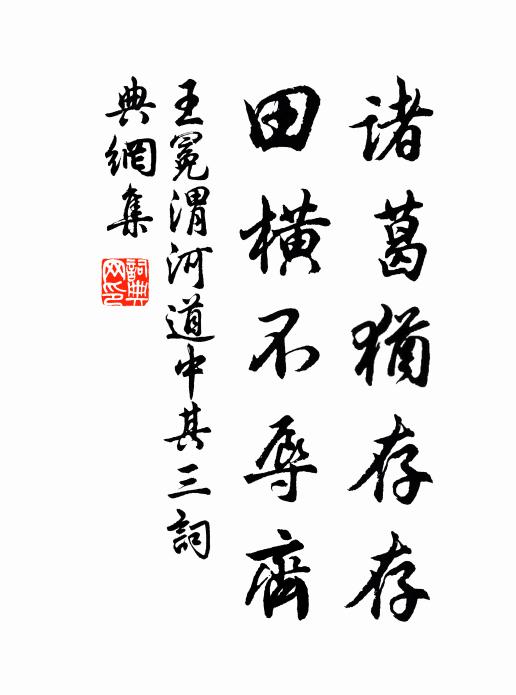 諸葛猶存存
田橫不辱齊
王冕渭河道中其三詞
典網集
詞典網印